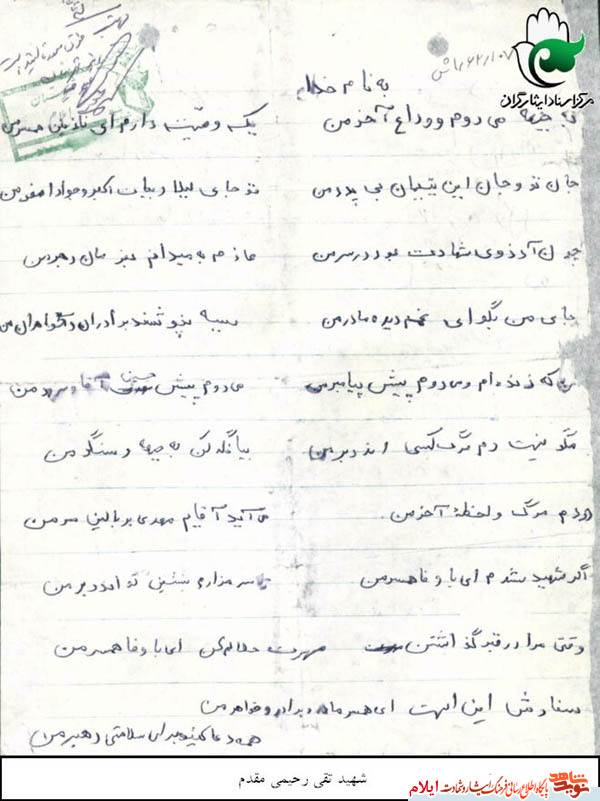 مرکز اسناد ایثارگران
به نام خدا
به جبهه می روم و وداع آخر من یک وصیت دارم ای نازنین همسر من
جان تو و جان این یتیمان بی پدر من تو جای لیلا رباب اکبر و جواد اصغر من
چون آرزوی شهادت بود در سر من عازم به میدانم
جای من بگو ای غم دیده مادر من سیه نپوشند برادران و خواهران من
که زنده ام و می روم پیش پیامبر من می روم پیش حسین آقا و سرور من
مگو نیست دم مرگ کسی اندر بر من بیا گله کن به جبهه و سنگر من
دم مرگ و لحظه آخر من می آید آقایم مهدی بر بالین سر من
اگر شهید شدم ای با وفا همسر من سر مزارم بنشین تو اندر بر من
وقتی مرا در قبر گذاشتن مهرت حلالم کن ای با وفا همسر من
سفارش این است ای همسر مادر و برادر و خواهر من
همه دعا کنید برای سلامتی رهبر من
شهید تقی رحیمی مقدم
نوید شاهد پایگاه اطلاع رسانی فرهنگ ایثار و شهادت ایلام